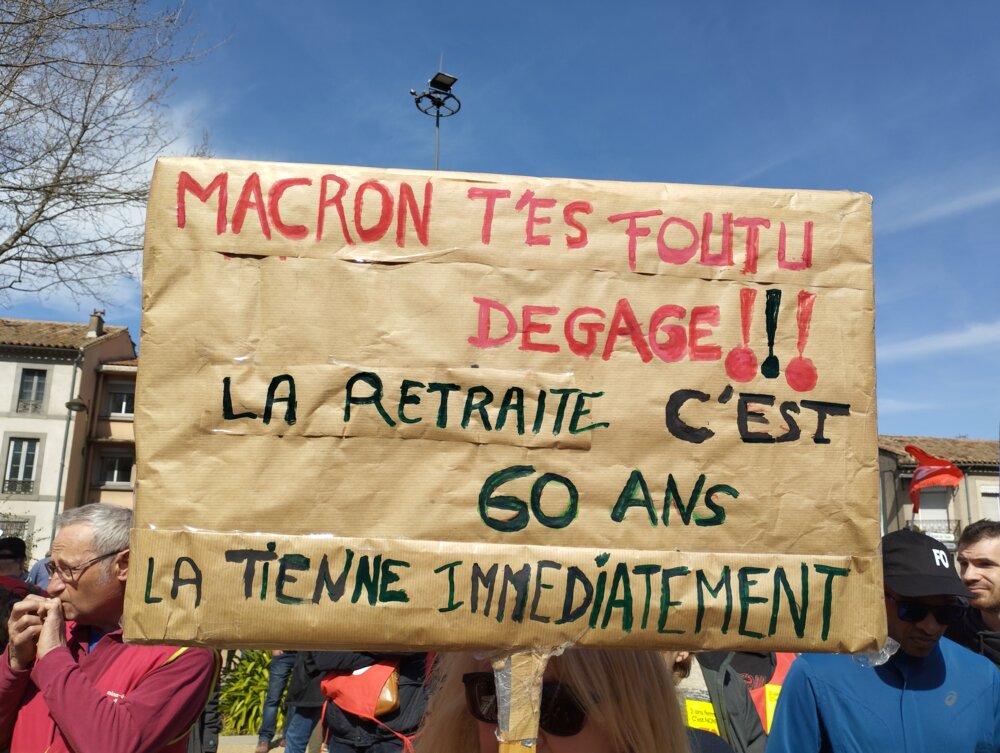 MACRON T'ES FOUTU
DEGAGE!!!
LA RETRAITE C'EST
60 ANS
LA TIENNE IMMEDIATEMENT
FO